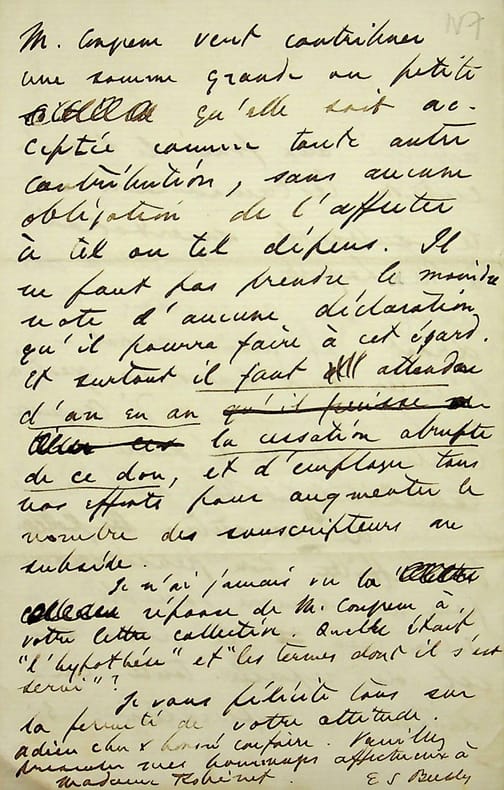 M. Congreve veut contribuer
une somme grande ou petite
qu'elle soit ac-
ceptée comme toute autre
contribution, sans aucune
obligation de l'affecter
à tel ou tel dépens. Il
ne faut pas prendre la moindre
note d'aucune déclaration
qu'il pourra faire à cet égard.
Et surtout il faut attendre
d'an en an qu'il puisse
la cessation abrupte
de ce don, et d'employer tous
nos efforts pour augmenter le
nombre des souscripteurs au
subside.
Je n'ai jamais vu la
réponse de M. Congreve à
votre lettre collective. Quelle était
"l'hypothèse" et "les termes dont il s'est
servi"?
Je vous félicite tous sur
la fermeté de votre attitude.
Adieu cher & honoré confrère. Veuillez
présenter mes hommages affectueux à
Madame Robinet. E S Beesly